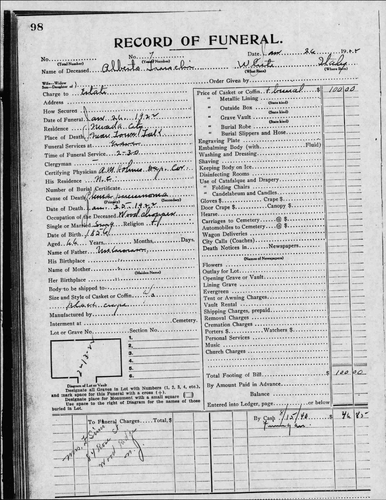 98
RECORD OF FUNERAL.
No. No. 7 Date Jan 26 19
(Total Number) (Yearly Number)
Name of Deceased Alberto White Italy
(What Race) (Where Born)
Charge to Estate Order Given by
Address
How Secured
Date of Funeral Jan. 26, 1924
Residence Nevada City
Place of Death Near Town Talk
Funeral Services at Grave
Time of Funeral Service 2-30
Clergyman
Certifying Physician A. W. Holmes Dep. Cor.
His Residence N. C.
Number of Burial Certificate
Cause of Death pneumonia
(Primary) (Secondary)
Date of Death Jan. 1924
Occupation of the Deceased Wood chopper
Single or Married Sing Religion
Date of Birth
Aged 66 Years Months, Days.
Name of Father Unknown
His Birthplace
Name of Mother
(Maiden Name)
Her Birthplace
Body to be shipped to
Size and Style of Casket or Coffin
Black crape
Manufactured by
Interment at Cemetery.
Lot or Grave No. Section No.
1.
2.
3.
4.
5.
6.
Diagram of Lot or Vault
Designate all Graves in Lot with Numbers (1, 2, 3, 4, etc.),
and mark space for this Funeral with a cross (+).
Designate place for Monument with a small square □
Use space to the right of Diagram for the names of those
buried in Lot.
To Funeral Charges, Total
Price of Casket or Coffin + burial $ 100.00
" Metallic Lining
(State Kind)
" Outside Box
(State Kind)
" Grave Vault
(State Kind)
" Burial Robe
(State Kind)
" Burial Slippers and Hose
Engraving Plate
Embalming Body (with Fluid)
Washing and Dressing
Shaving
Keeping Body on Ice
Disinfecting Rooms
Use of Catafalque and Drapery
" Folding Chairs
" Candelabrum and Candles
Gloves $ Crape $
Door Crape $ Canopy $
Hearse
Carriages to Cemetery @ $
Automobiles to Cemetery @ $
Wagon Deliveries @ $
City Calls (Coaches)
Death Notices in Newspapers
(Names of Newspapers)
Flowers $
Outlay for Lot
Opening Grave or Vault
Lining Grave
Evergreen
Tent or Awning Charges
Vault Rental
Shipping Charges, prepaid
Removal Charges
Cremation Charges
Porters $ Watchers $
Personal Services
Music
Church Charges
Total Footing of Bill $ 100.00
By Amount Paid in Advance
Balance
Entered into Ledger, page or below.
By Cash